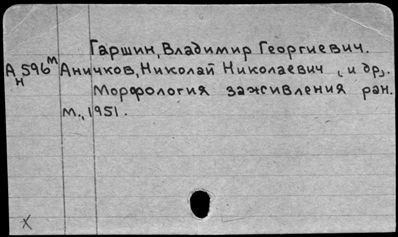 Гаршин, Владимир Георгиевич.
А 596м Аничков, Николай Николаевич (и др).
н Морфология заживления ран.
М., 1951.
х